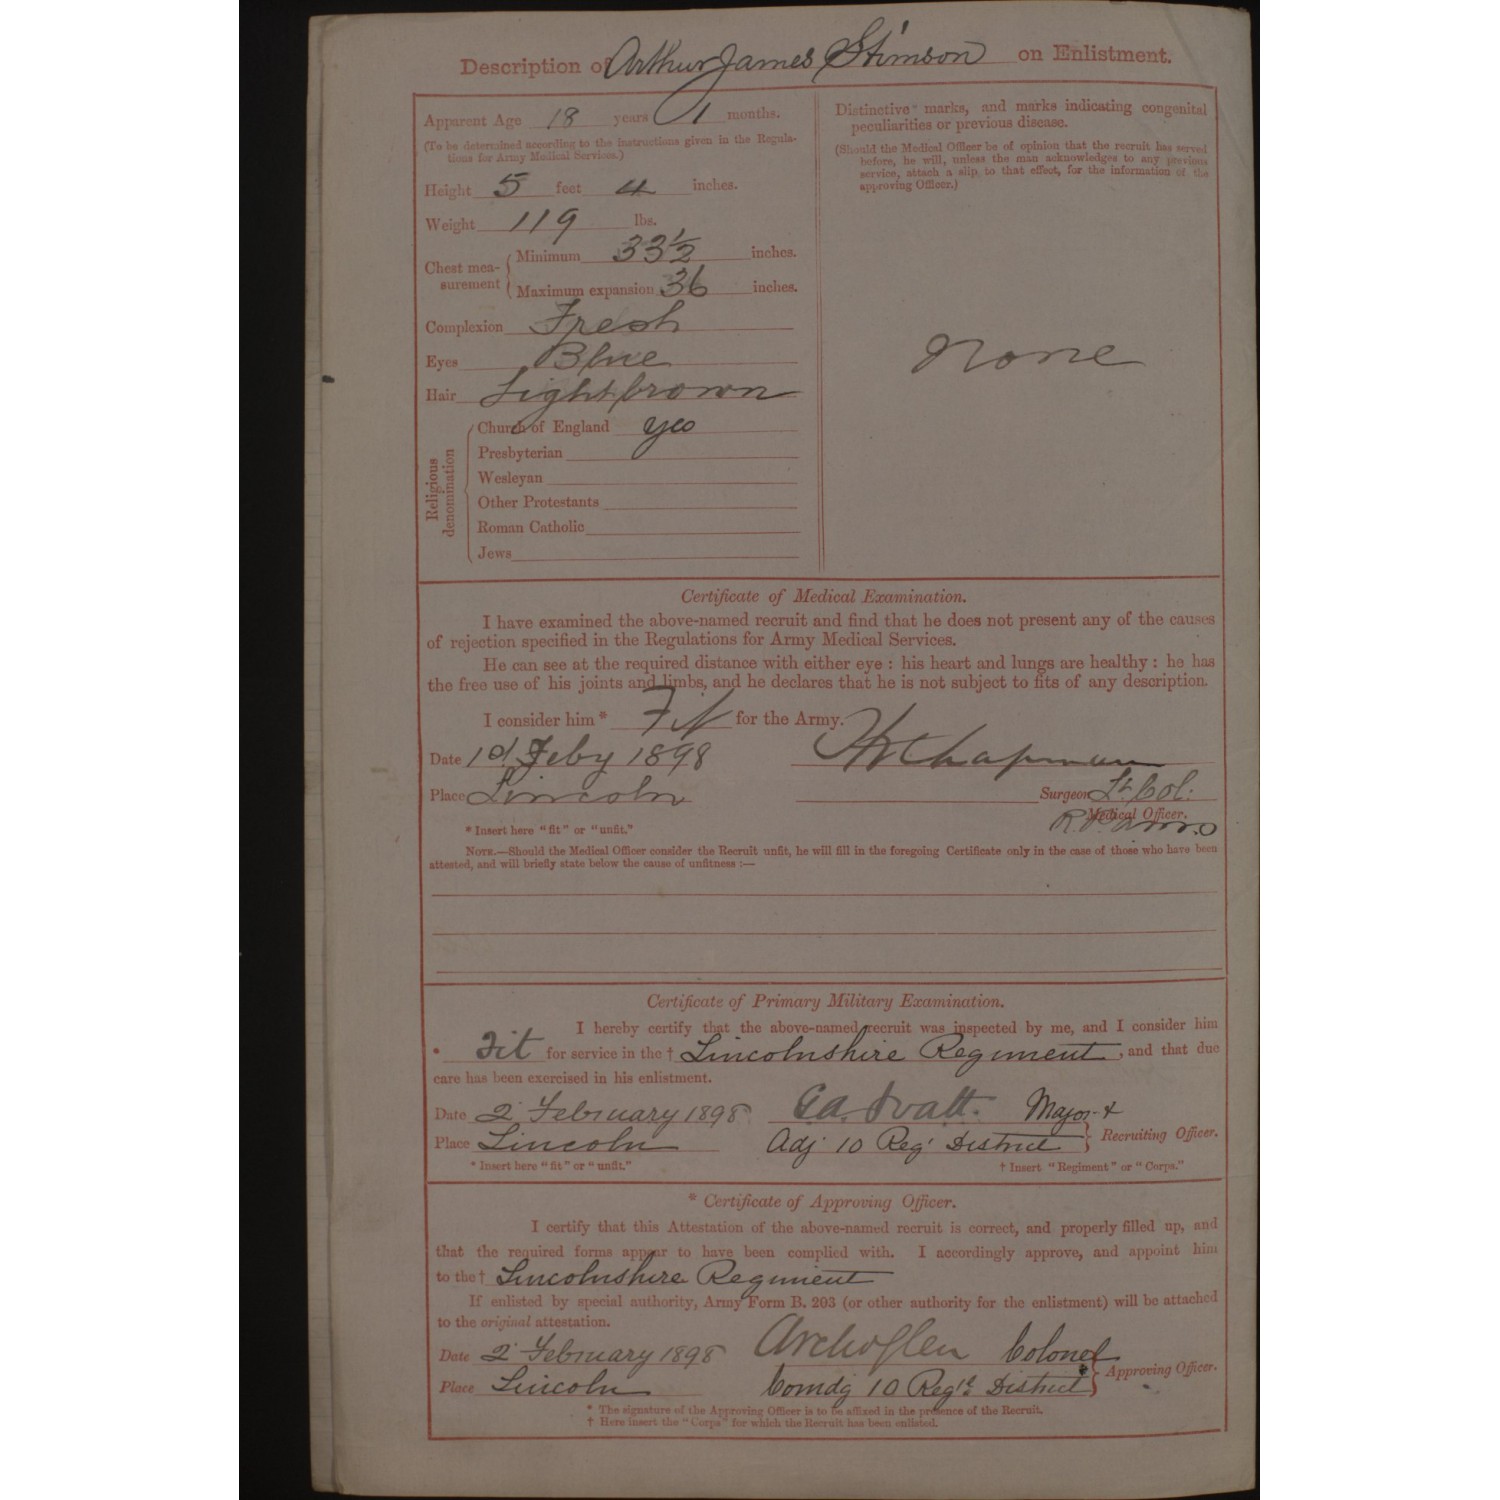 Description of Arthur James Stimson on Enlistment.
Apparent Age 18 years 1 months.
(To be determined according to the instructions given in the Regula-
tions for Army Medical Services.)
Height 5 feet 4 inches.
Weight 119 lbs.
Chest mea-
surement
Minimum 33½ inches.
Maximum expansion 36 inches.
Complexion Fresh
Eyes Blue
Hair Light brown
Religious
denomination
Church of England yes
Presbyterian
Wesleyan
Other Protestants
Roman Catholic
Jews
Distinctive marks, and marks indicating congenital
peculiarities or previous disease.
(Should the Medical Officer be of opinion that the recruit has served
before, he will, unless the man acknowledges to any previous
service, attach a slip to that effect, for the information of the
approving Officer.)
None
Certificate of Medical Examination.
I have examined the above-named recruit and find that he does not present any of the causes
of rejection specified in the Regulations for Army Medical Services.
He can see at the required distance with either eye : his heart and lungs are healthy : he has
the free use of his joints and limbs, and he declares that he is not subject to fits of any description.
I consider him * Fit for the Army.
Date Feby 1898 Chapman
Place Lincoln Surgeon Lt. Col.
Medical Officer.
* Insert here "fit" or "unfit."
NOTE.—Should the Medical Officer consider the Recruit unfit, he will fill in the foregoing Certificate only in the case of those who have been
attested, and will briefly state below the cause of unfitness :—
Certificate of Primary Military Examination.
I hereby certify that the above-named recruit was inspected by me, and I consider him
* Fit for service in the † Lincolnshire Regiment, and that due
care has been exercised in his enlistment.
Date 2 February 1898 Major &
Place Lincoln Adj 10 Reg District Recruiting Officer.
* Insert here "fit" or "unfit." † Insert "Regiment" or "Corps."
* Certificate of Approving Officer.
I certify that this Attestation of the above-named recruit is correct, and properly filled up, and
that the required forms appear to have been complied with. I accordingly approve, and appoint him
to the † Lincolnshire Regiment
If enlisted by special authority, Army Form B. 203 (or other authority for the enlistment) will be attached
to the original attestation.
Date 2 February 1898 Colonel
Place Lincoln Comdg 10 Regtl District Approving Officer.
* The signature of the Approving Officer is to be affixed in the presence of the Recruit.
† Here insert the "Corps" for which the Recruit has been enlisted.